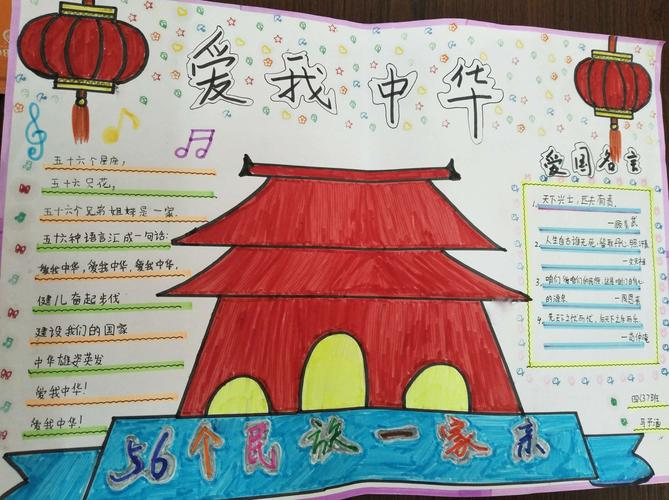 爱我中华
五十六个星座,
五十六只花,
五十六个兄弟姐妹是一家.
五十六种语言汇成一句话:
爱我中华,爱我中华,爱我中华.
健儿奋起步伐
建设我们的国家
中华雄姿英发
爱我中华!
爱我中华!
爱国名言
1. 天下兴亡,匹夫有责.
—顾炎武
2. 人生自古谁无死,留取丹心照汗青
—文天祥
3.
的源泉 —周恩来
4. 先天下之忧而忧,后天下之乐而乐.
—范仲淹
56个民族一家亲
四(37)班